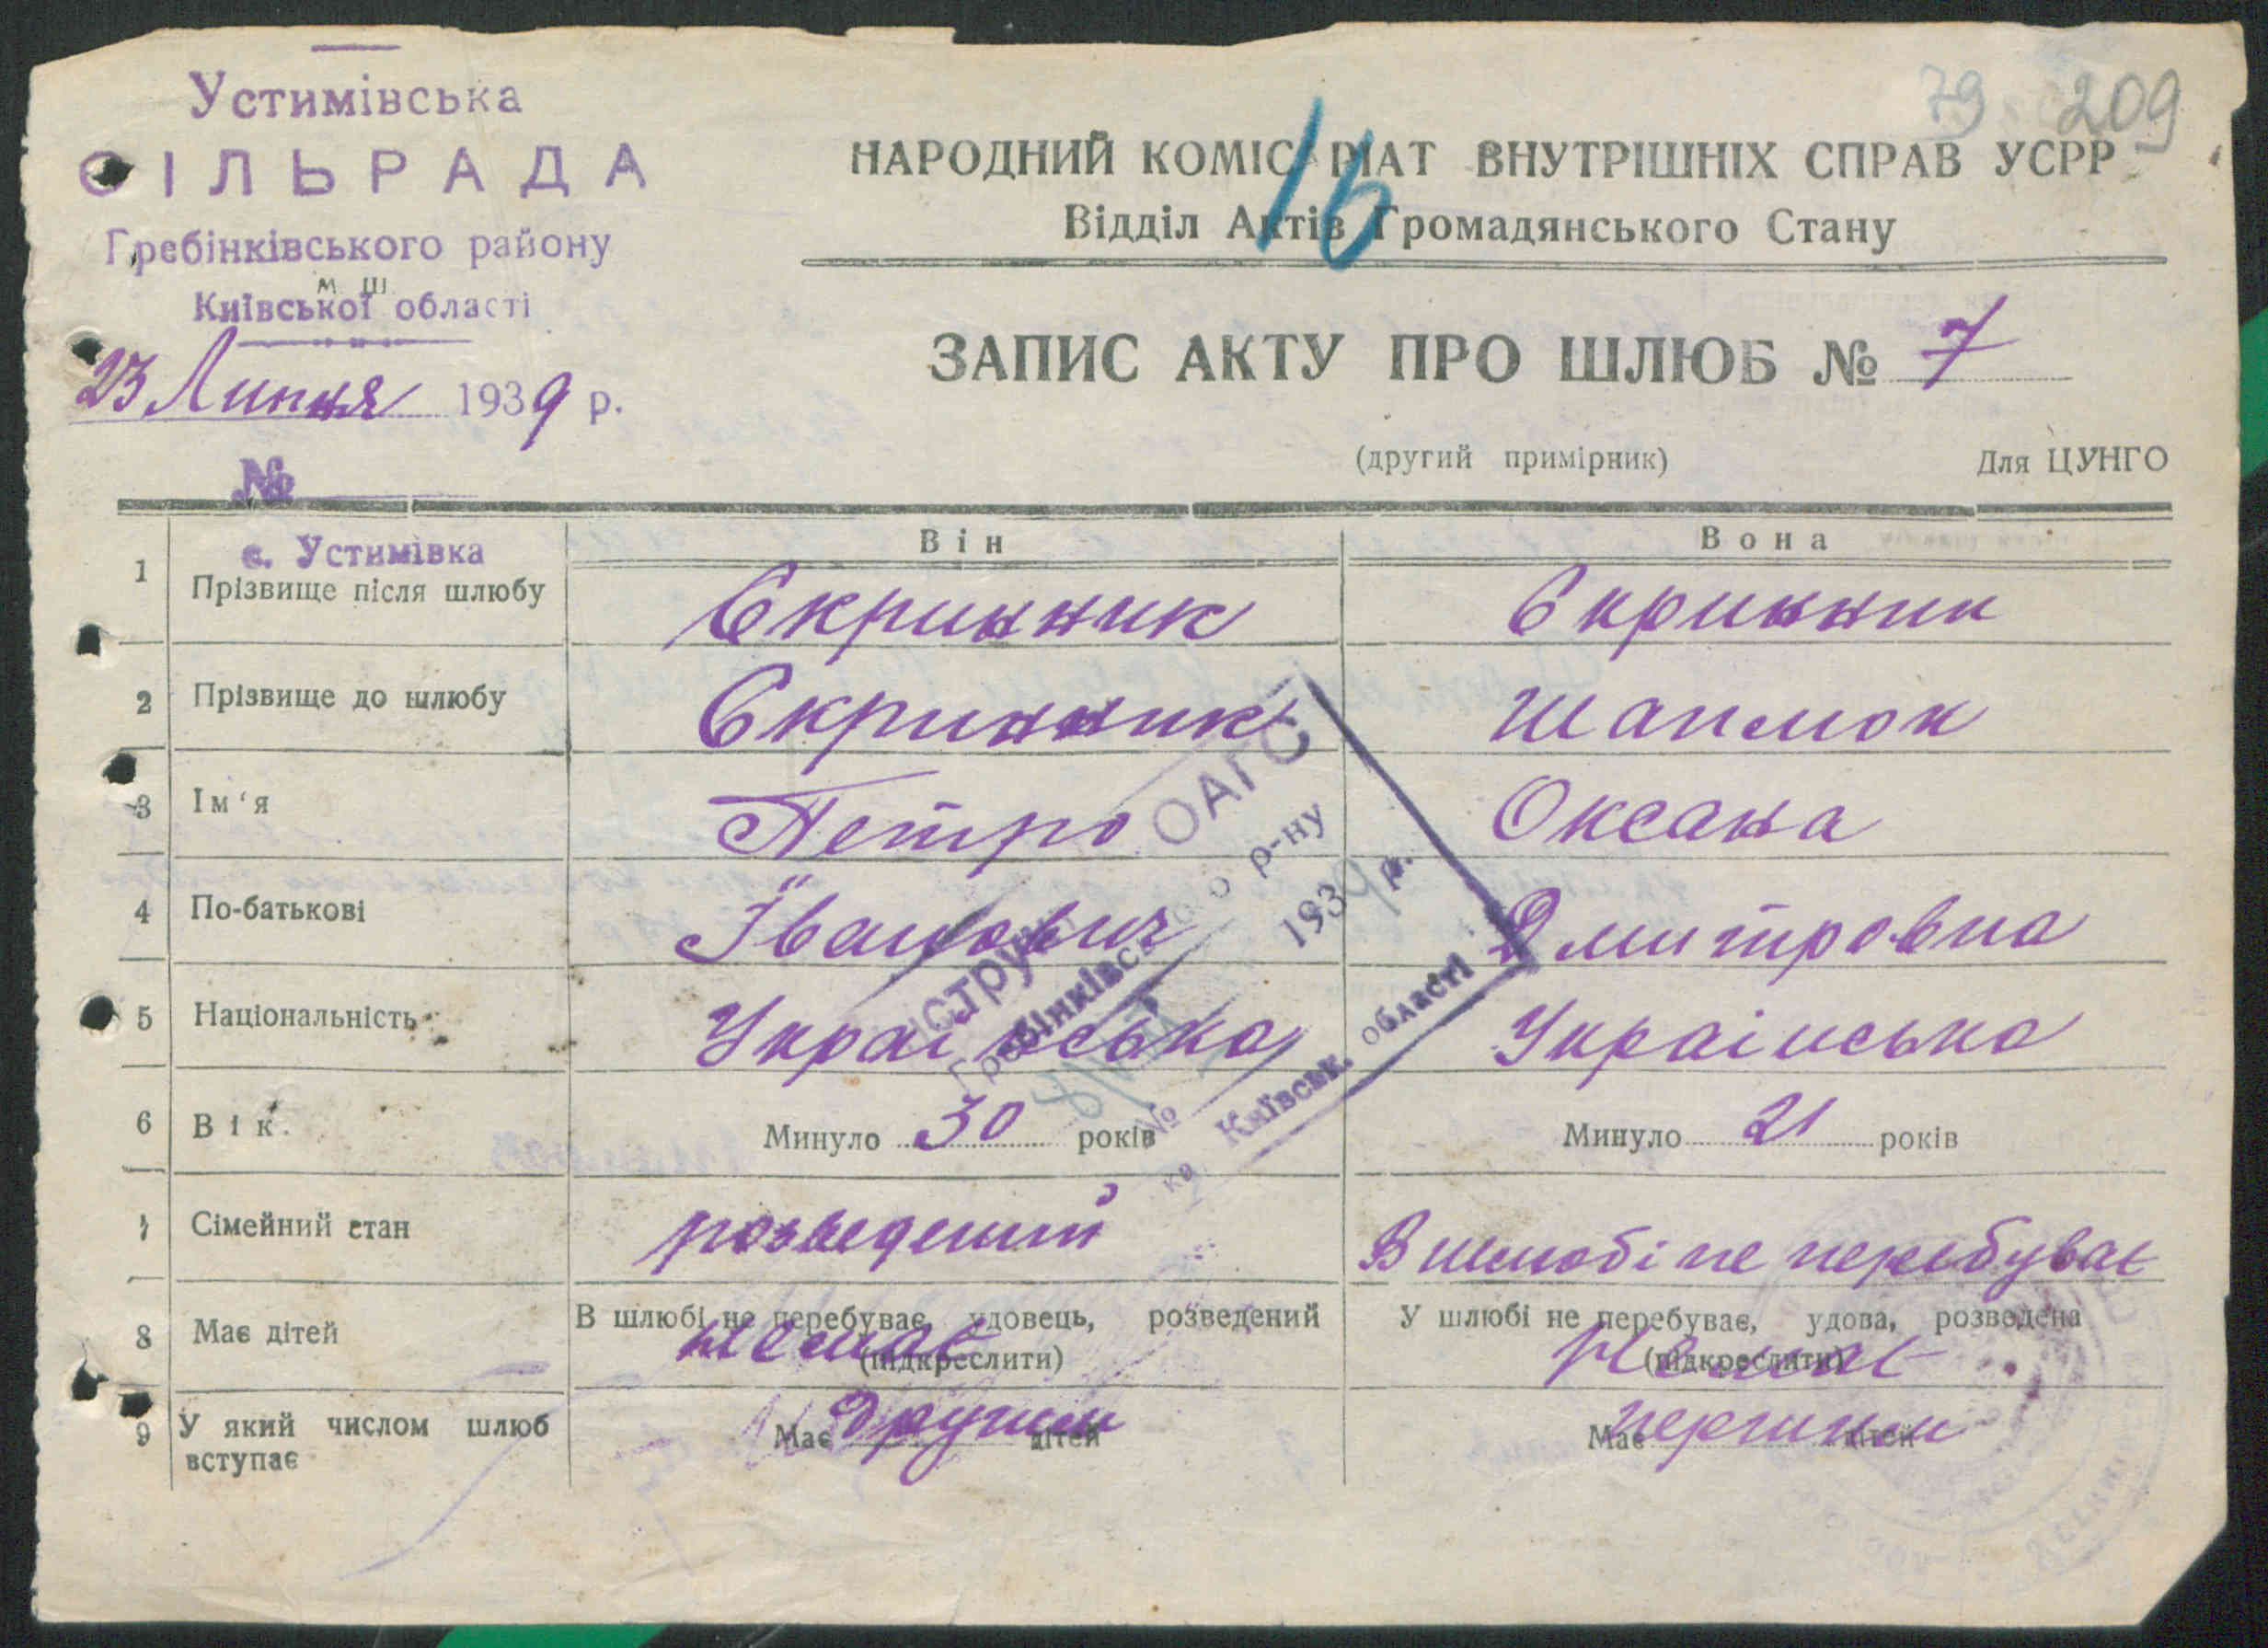 79 209
Устимівська
СІЛЬРАДА
Гребінківського району
м ш
Київської області
23 Липня 1939 р.
№
16
НАРОДНИЙ КОМІС РІАТ ВНУТРІШНІХ СПРАВ УСРР
Відділ Актів Громадянського Стану
ЗАПИС АКТУ ПРО ШЛЮБ № 7
(другий примірник) Для ЦУНГО
с. Устимівка
Він Вона
1 Прізвище після шлюбу Скринник Скринник
2 Прізвище до шлюбу Скринник
3 Ім'я Петро Оксана
4 По-батькові Іванович Дмитровна
5 Національність Українська Українська
6 Вік Минуло 30 років Минуло 21 років
7 Сімейний стан розведений В шлюбі не перебуває
8 Має дітей В шлюбі не перебуває, удовець, розведений У шлюбі не перебуває, удова, розведена
немає (підкреслити) Немає (підкреслити)
9 У який числом шлюб вступає Має другий дітей Має перший дітей
ОАГС
Гребінківського р-ну
№ 193 р.
Київськ. області